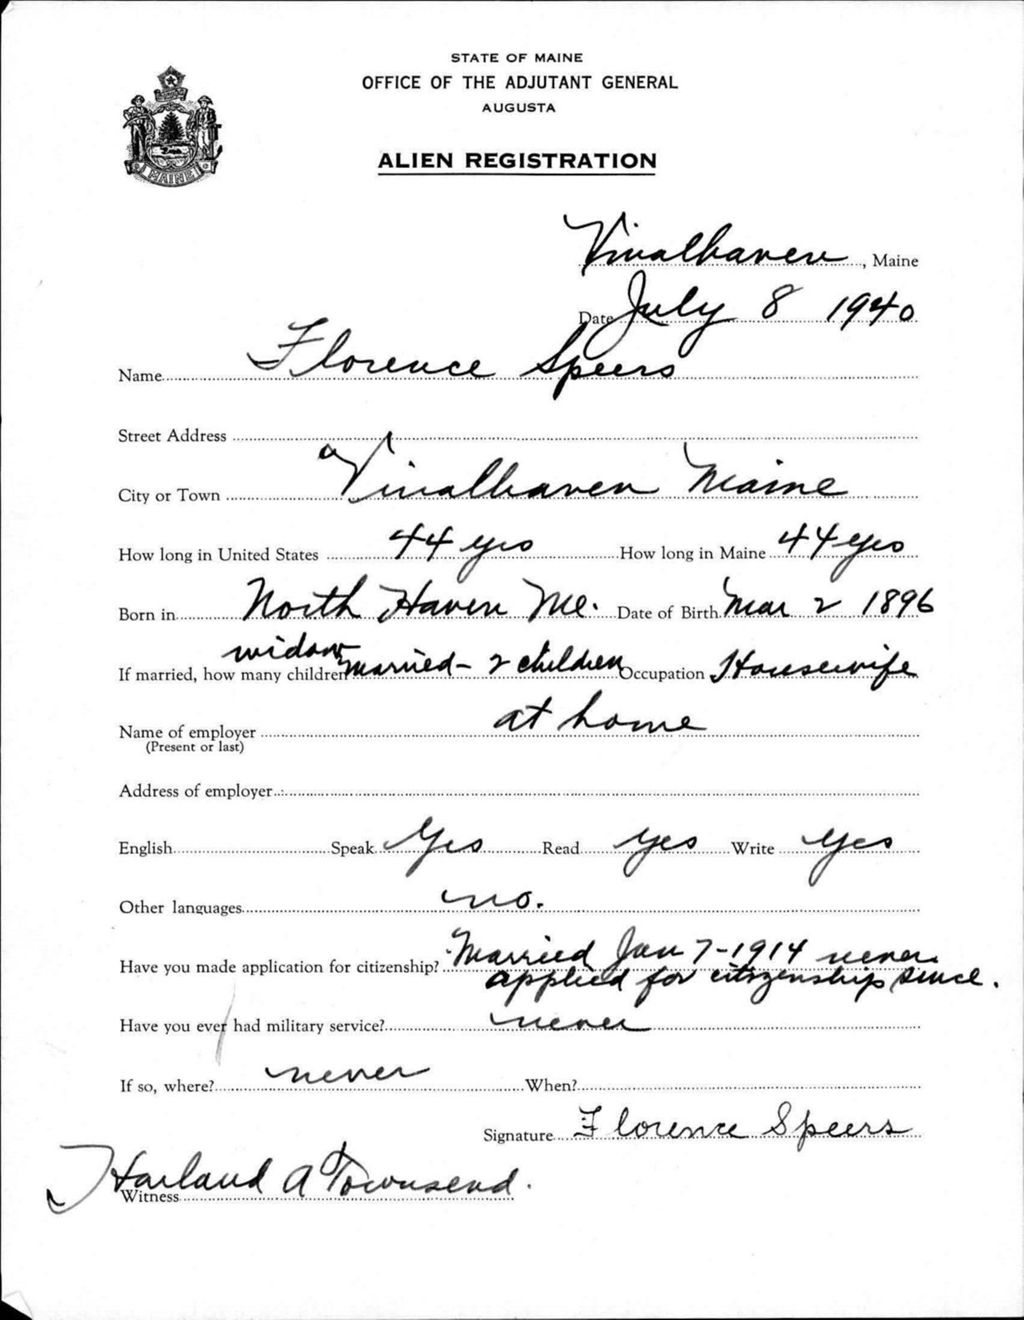 STATE OF MAINE
OFFICE OF THE ADJUTANT GENERAL
AUGUSTA
ALIEN REGISTRATION
MAINE
Vinalhaven, Maine
Date July 8 1940
Name Florence Speers
Street Address
City or Town Vinalhaven Maine
How long in United States 44 yrs How long in Maine 44 yrs
Born in North Haven Me. Date of Birth Mar 2 1896
widow
If married, how many children married - 2 children Occupation Housewife
Name of employer at home
(Present or last)
Address of employer
English Speak Yes Read yes Write yes
Other languages no.
Have you made application for citizenship? Married Jan 7-1914 never
applied for citizenship since.
Have you ever had military service? never
If so, where? never When?
Signature Florence Speers
Harland A Townsend.
Witness